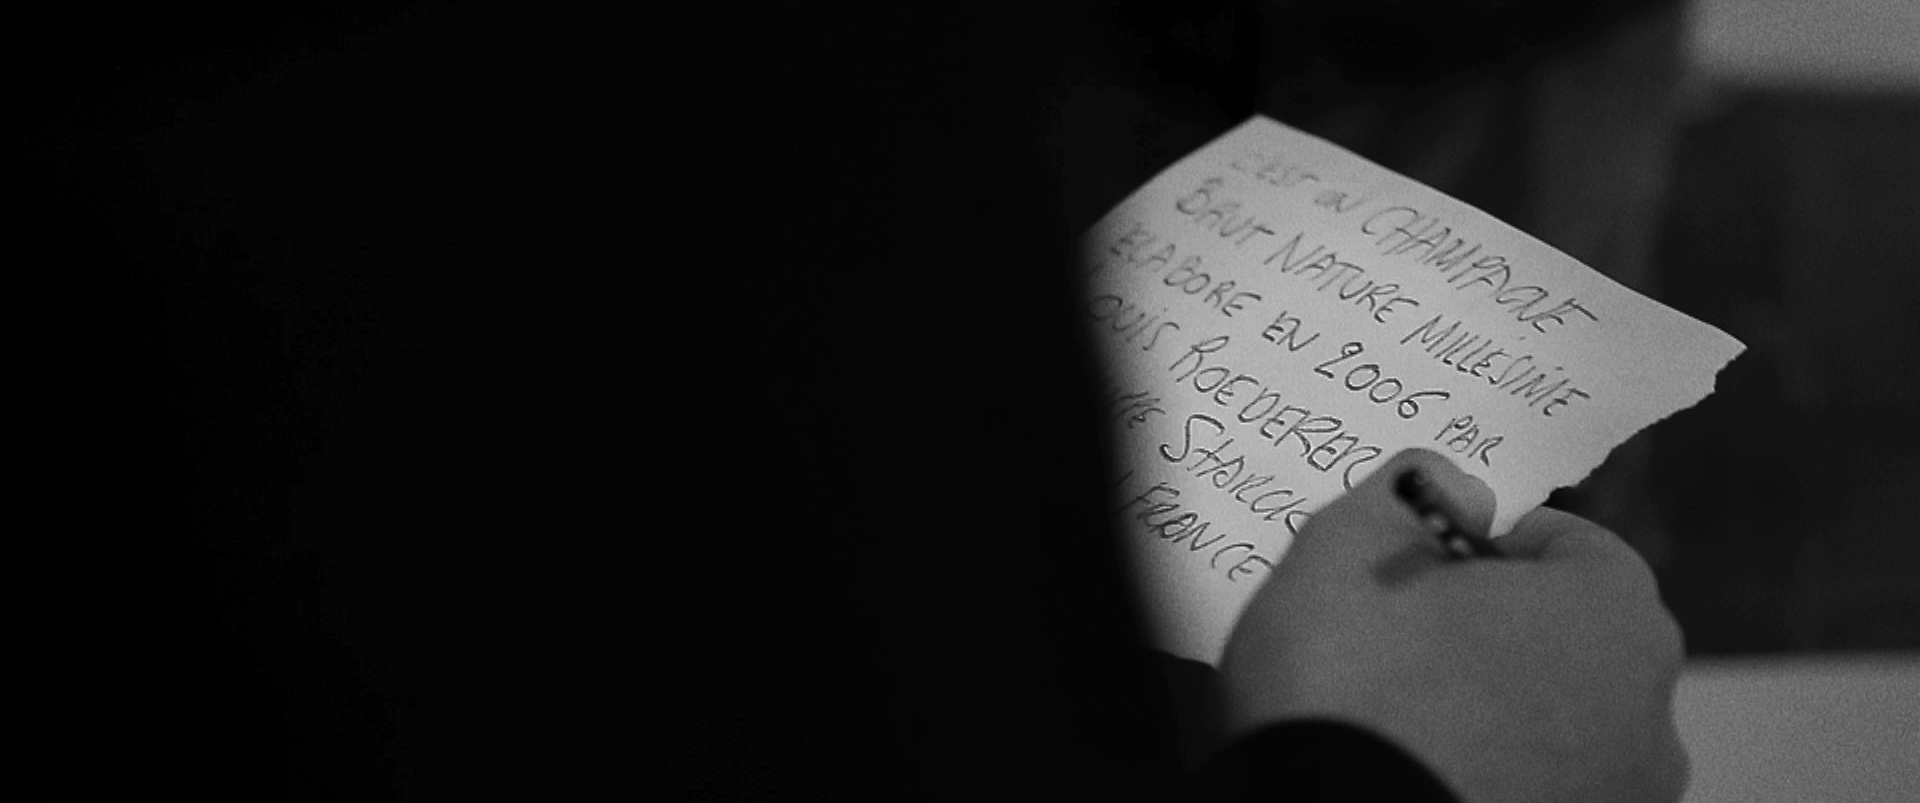 C'EST UN CHAMPAGNE
BRUT NATURE MILLÉSIMÉ
ELABORE EN 2006 PAR
OUIS ROEDERER
STARCK
FRANCE